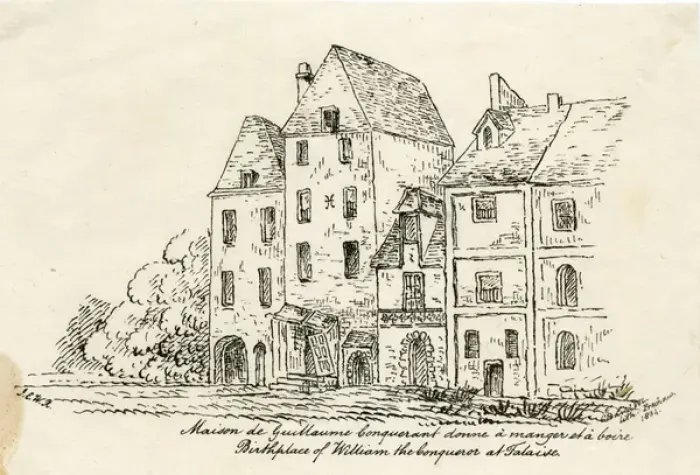 J.E.W.R.
1884.
Maison de Guillaume Conquerant donne à manger et à boire
Birthplace of William the Conqueror at Falaise.